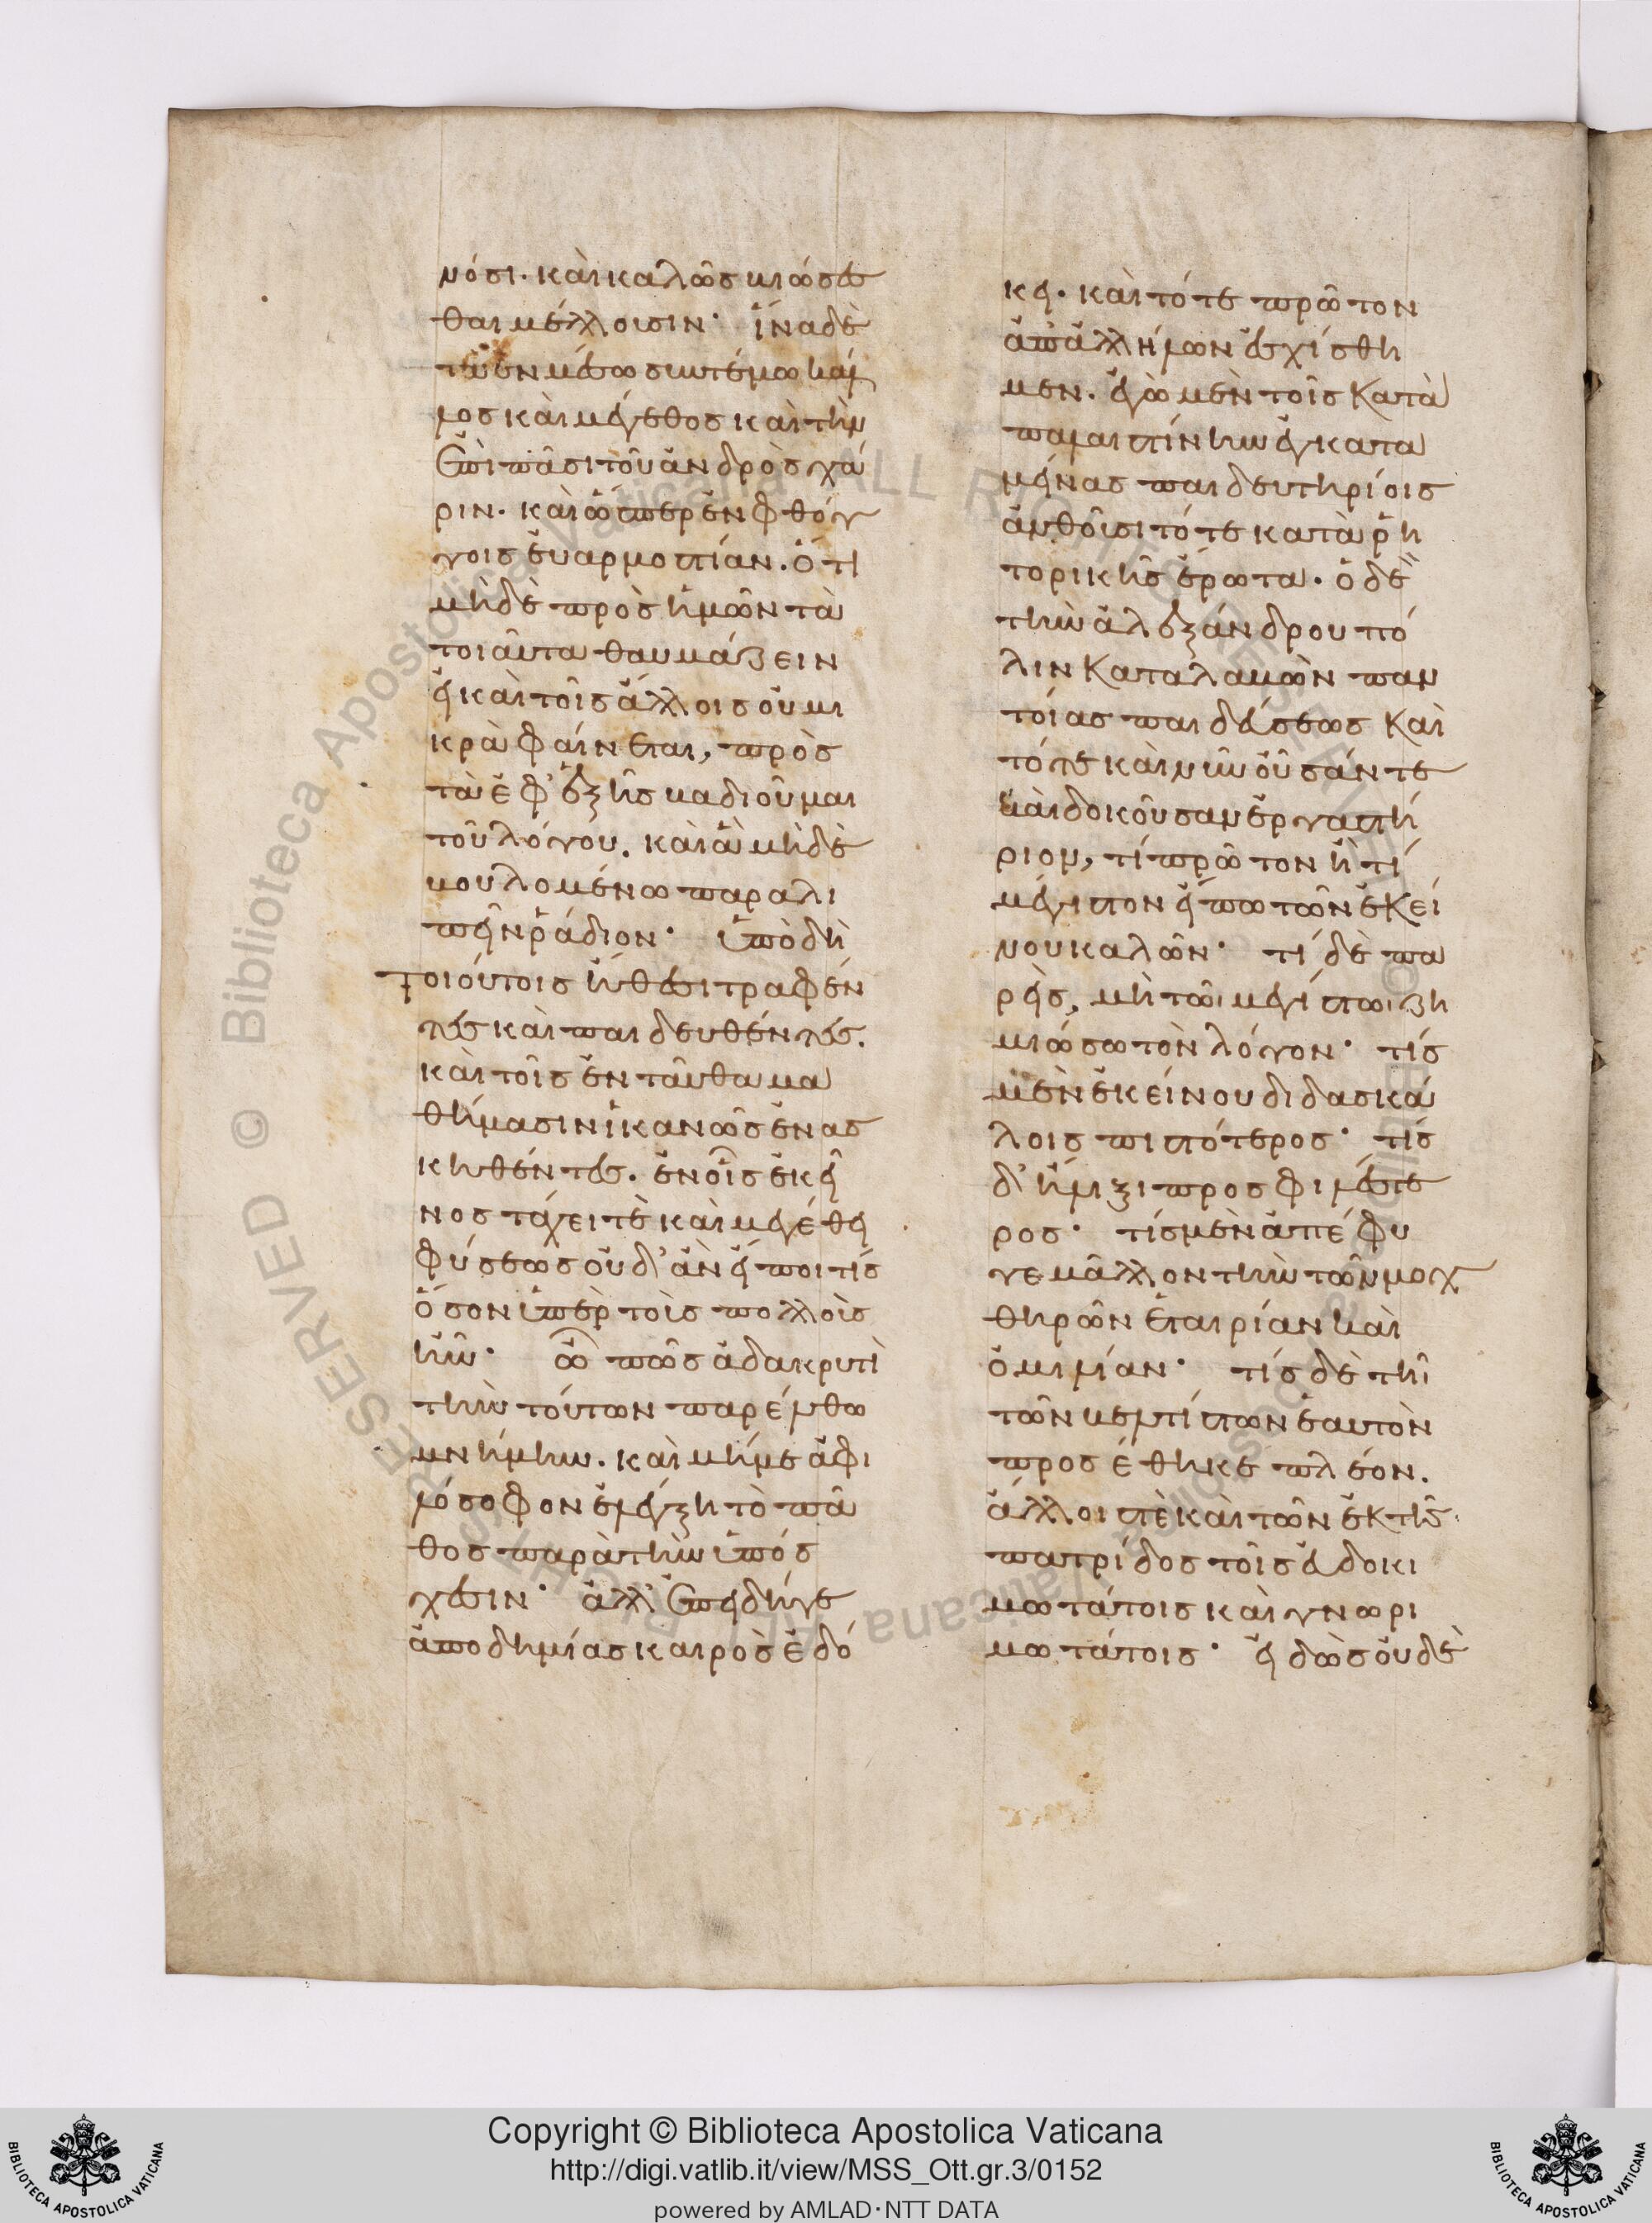 νόσι· καὶ καλῶς βιώσεσ
θαι μέλλουσιν· ἵνα δὲ
τὰ ἐν μέσω συντέμω κάλ
λος καὶ μέγεθος καὶ τὴν
ἐπὶ πᾶσι τοῦ ἀνδρὸς χά
ριν. καὶ ὥσπερ ἐν φθόγ
γοις εὐαρμοστίαν. ὅτι
μηδὲ πρὸς ἡμῶν τὰ
τοιαῦτα θαυμάζειν
εἰ καὶ τοῖς ἄλλοις οὐ μι
κρὰ φαίνεται, πρὸς
τὰ ἐφ' ἑξῆς βαδιοῦμαι
τοῦ λόγου. καὶ ἃ μηδὲ
βουλομένω παραλι
πεῖν ῥάδιον· ὑπὸ δὴ
τοιούτοις ἤθεσι τραφέν
τες καὶ παιδευθέντες.
καὶ τοῖς ἐνταῦθα μα
θήμασιν ἱκανῶς ἐνασ
κηθέντες. ἐν οἷς ἐκεῖ
νος τάχει τὲ καὶ μεγέθει
φύσεως οὐδ' ἂν εἴποι τίς
ὅσον ὑπὲρ τοὺς πολλοὺς
ἦν· ὢ πῶς ἀδακρυτὶ
τὴν τούτων παρέλθω
μνήμην. καὶ μή με ἀφι
λόσοφον ἐλέγξη τὸ πά
θος παρὰ τὴν ὑπόσ
χεσιν· ἀλλ' ἐπειδή γε
ἀποδημίας καιρὸς ἐδό
κει. καὶ τότε πρῶτον
ἀπ' ἀλλήλων ἐσχίσθη
μεν. ἐγὼ μὲν τοῖς κατὰ
παλαιστίνην ἐγκατα
μείνας παιδευτηρίοις
ἀνθοῦσι τότε κατὰ ῥη
τορικῆς ἔρωτα. ὁ δὲ
τὴν ἀλεξάνδρου πό
λιν καταλαβὼν παν
τοίας παιδεύσεως καὶ
τότε καὶ νῦν οὖσάν τε
καὶ δοκοῦσαν ἐργαστή
ριον, τί πρῶτον ἢ τί
μέγιστον εἴπω τῶν ἐκεί
νου καλῶν· τί δὲ πα
ρεὶς, μὴ τῶι μεγίστωι ζη
μιώσω τὸν λόγον· τίς
μὲν ἐκείνου διδασκά
λοις πιστότερος· τίς
δ' ἥλιξι προσφιλέστε
ρος· τίς μὲν ἀπέφυ
γε μᾶλλον τὴν τῶν μοχ
θηρῶν ἑταιρίαν καὶ
ὁμιλίαν· τίς δὲ τῆι
τῶν βελτίστων ἑαυτὸν
προσέθηκε πλέον.
ἄλλοις τὲ καὶ τῶν ἐκ τῆς
πατρίδος τοῖς εὐδοκι
μωτάτοις καὶ γνωρι
μωτάτοις· εἰδὼς οὐδὲ
Copyright © Biblioteca Apostolica Vaticana
http://digi.vatlib.it/view/MSS_Ott.gr.3/0152
powered by AMLAD·NTT DATA